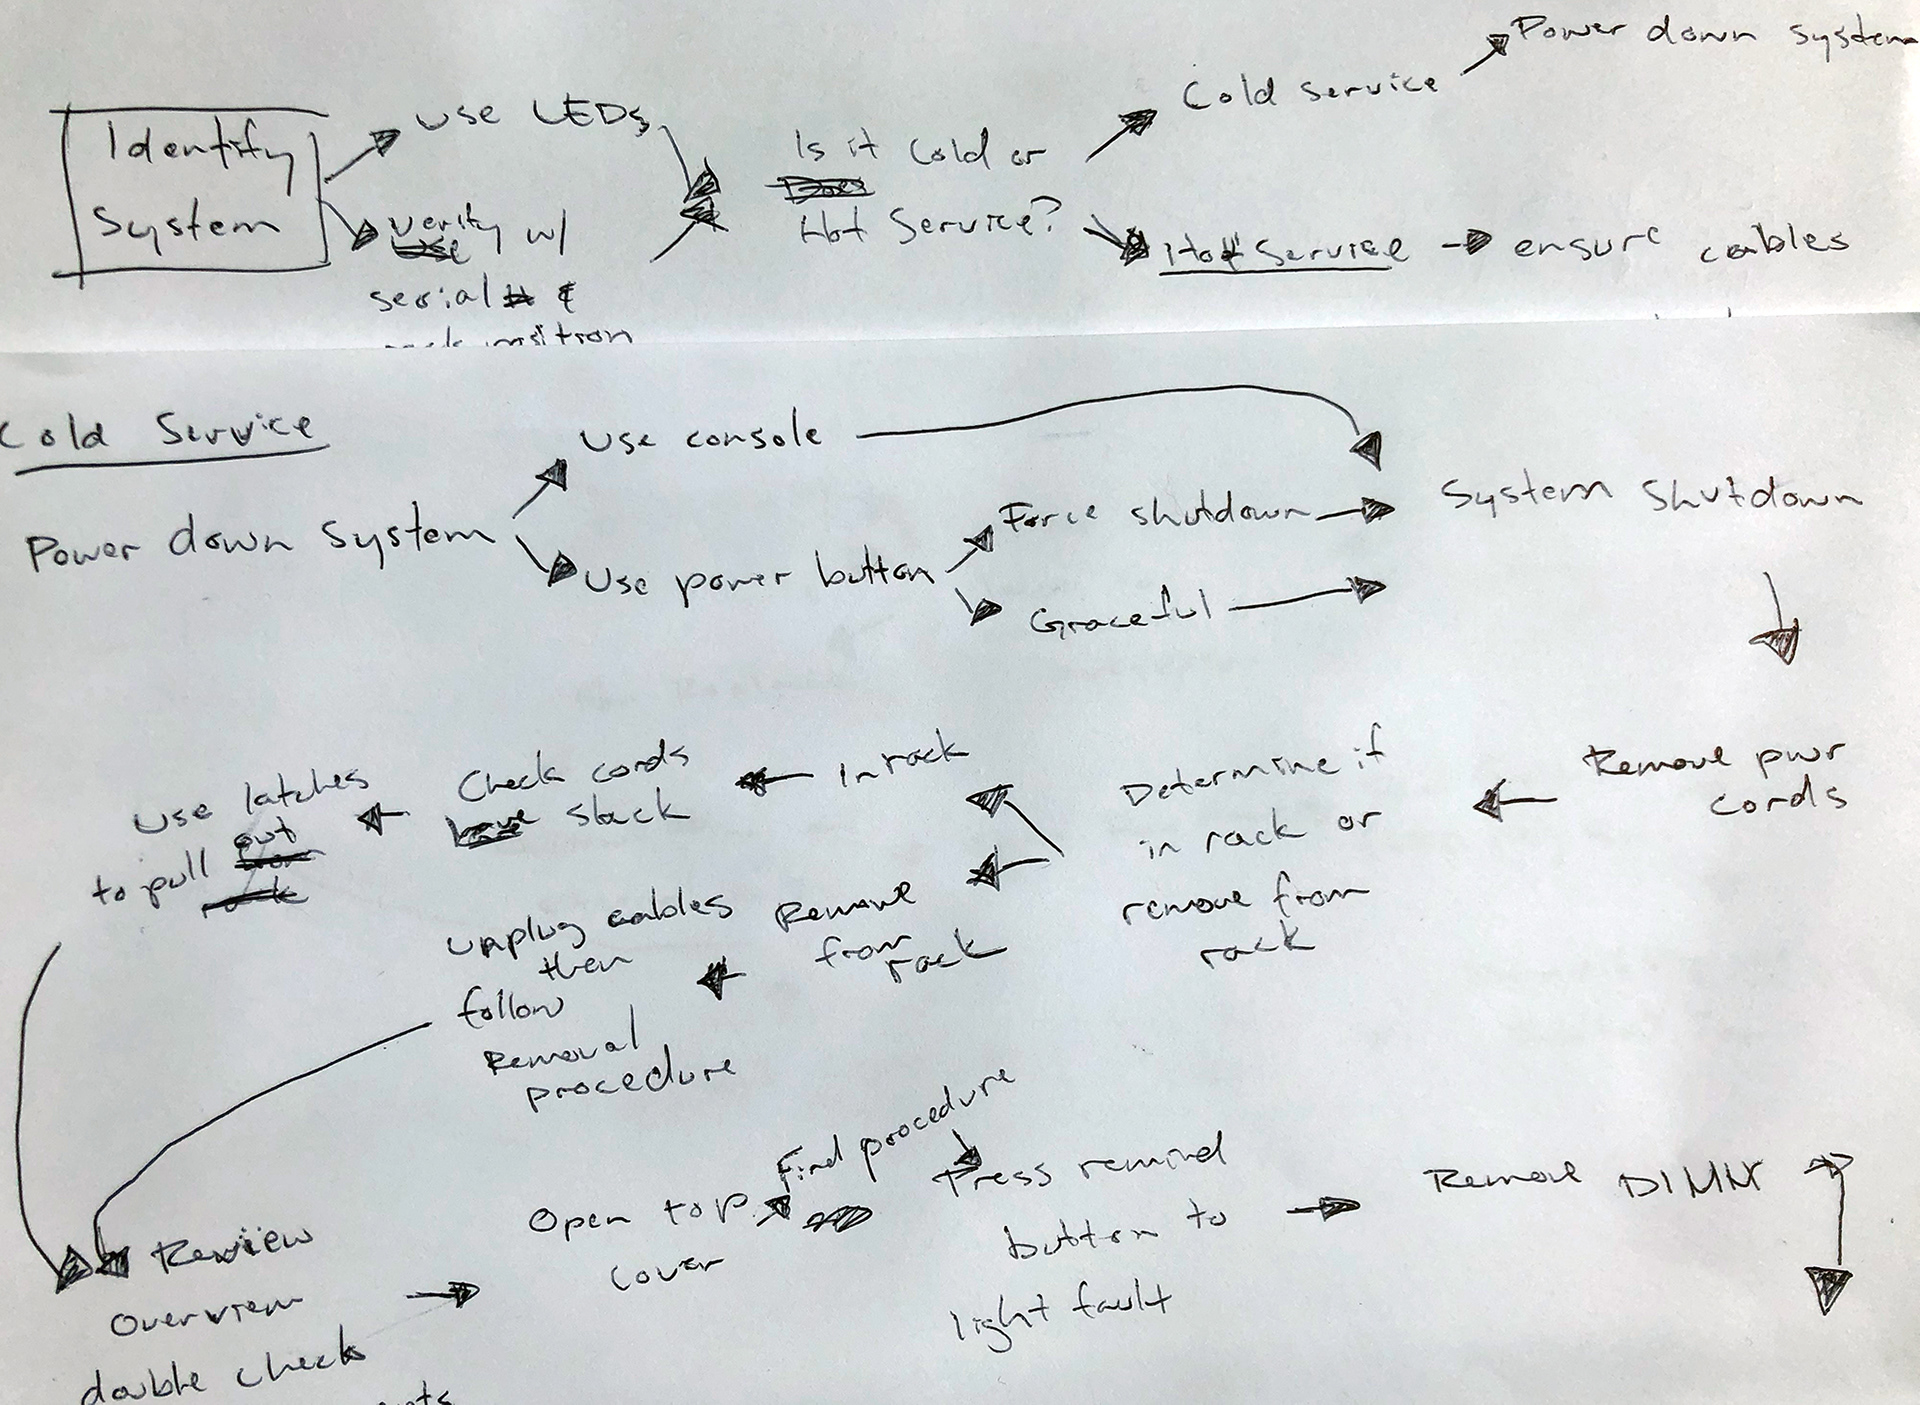 Power down system
Cold service
Use LEDs
Identify
System
Is it Cold or
Hot Service?
verify w/
serial # &
position
Hot Service
ensure cables
Cold Service
Use console
System Shutdown
Force shutdown
Power down System
Use power button
Graceful
Remove pwr
cords
Determine if
in rack or
remove from
rack
In rack
Check cords
have slack
Use latches
to pull out
Remove
from
rack
Unplug cables
then
follow
Removal
procedure
Find procedure
Press remind
button to
light fault
Remove DIMM
Open top
cover
Review
Overview
double check